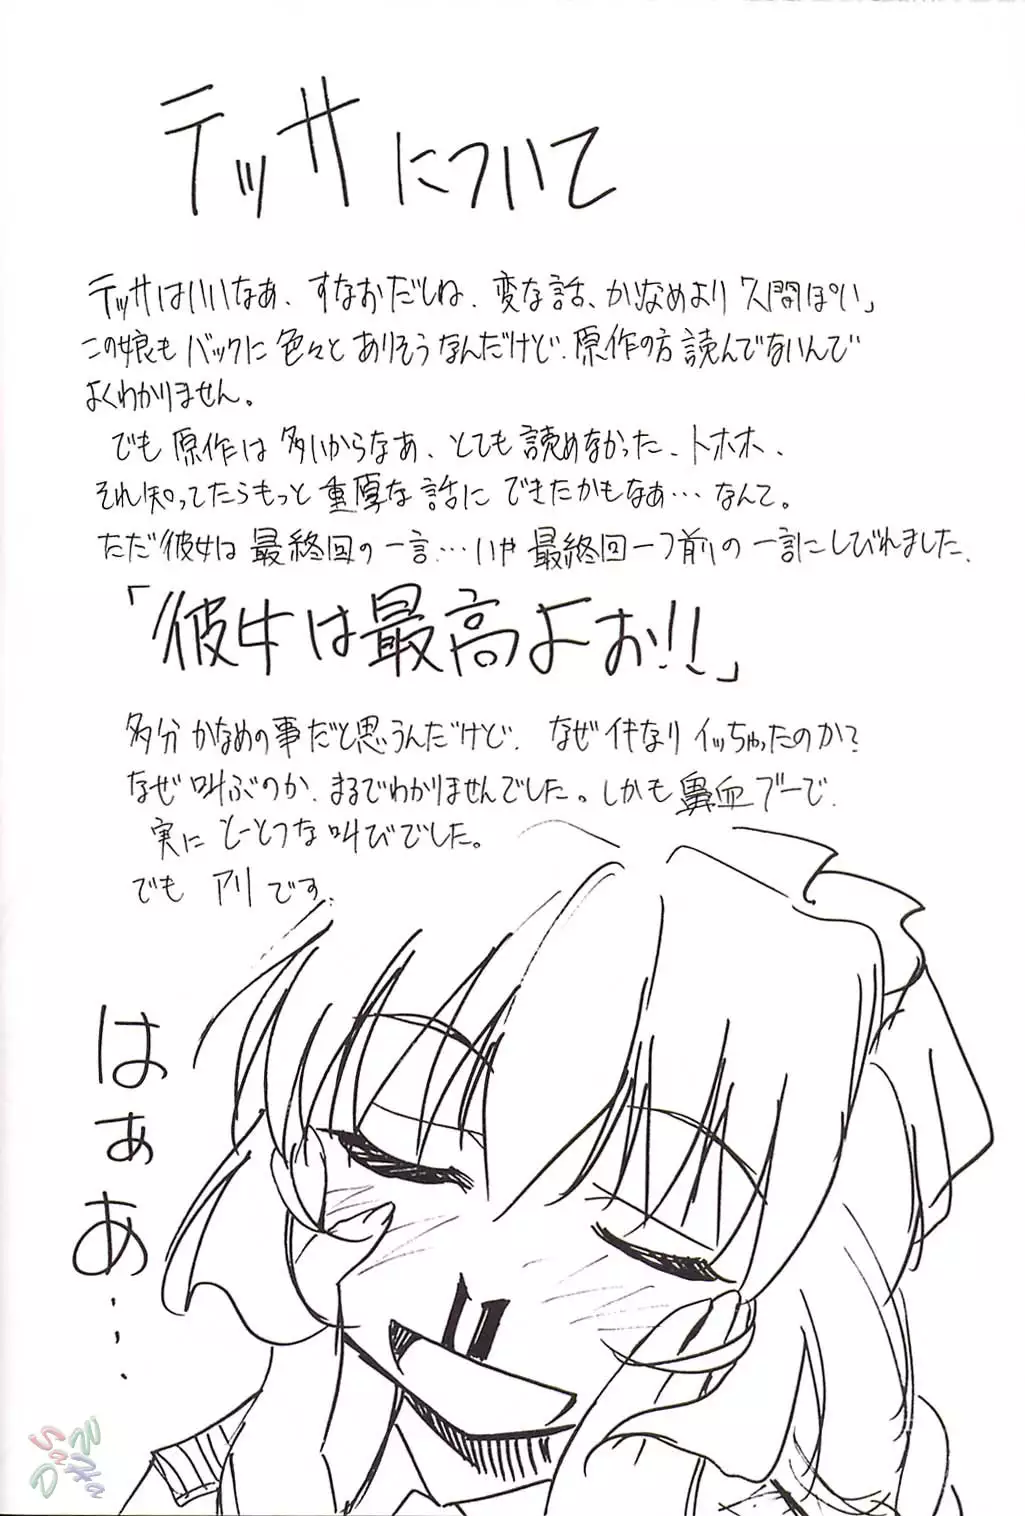 テッサについて
テッサはいいなぁ、すなおだしね、変な話、かなめより「人間ぽい」
この娘もバックに色々とありそうなんだけど、原作の方読んでないんで
よくわかりません。
でも原作は多いからなあ、とても読めなかった、トホホ、
それ知ってたらもっと重厚な話にできたかもなぁ…なんて。
ただ彼女は最終回の一言…いや最終回一つ前の一言にしびれました、
「彼女は最高よお!!」
多分かなめの事だと思うんだけど、なぜイキなりイッちゃったのか?
なぜ叫ぶのか、まるでわかりませんでした。しかも鼻血ブーで、
実にとーとつな叫びでした。
でもアリです、
はぁあ…